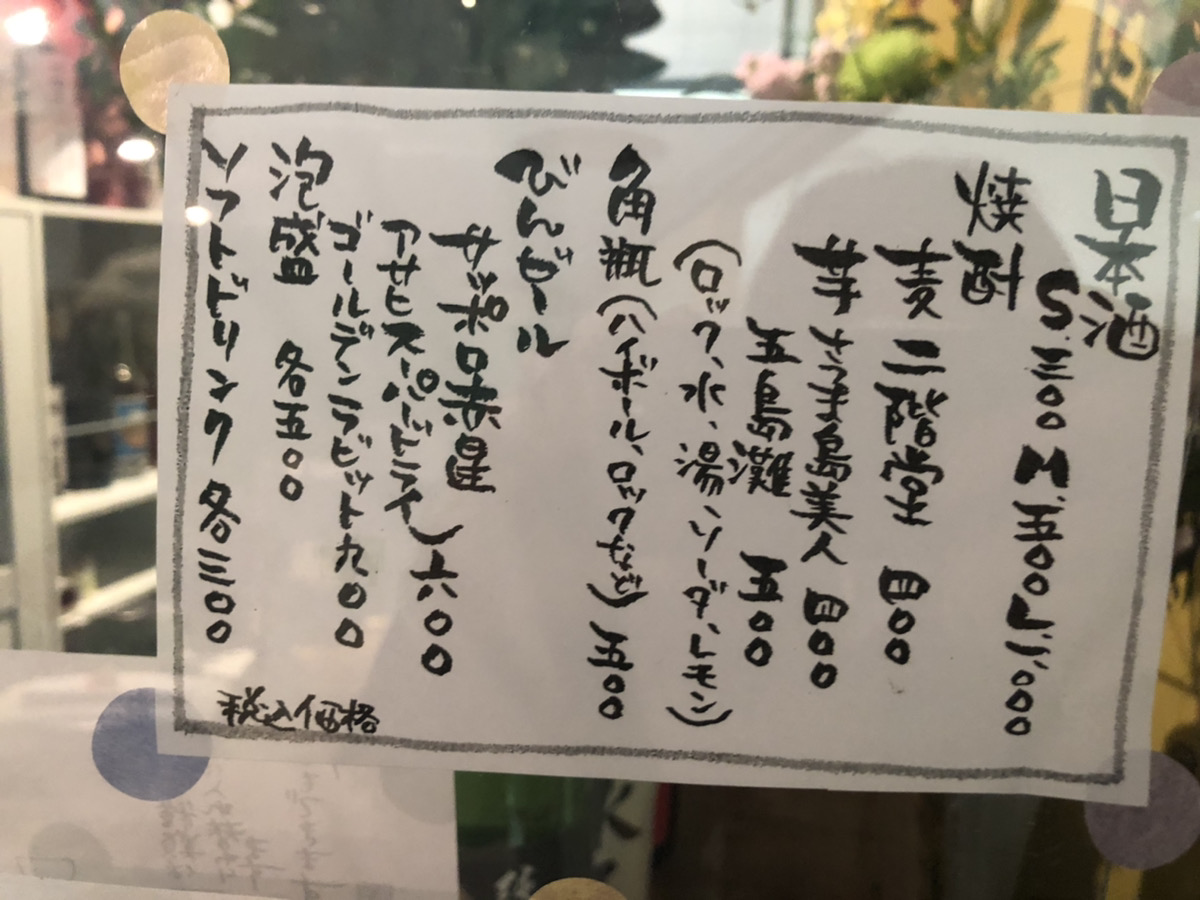 日本酒
S.三〇〇 M.五〇〇 L.一、〇〇〇
焼酎
麦 二階堂 四〇〇
芋 さつま島美人 四〇〇
五島灘 五〇〇
(ロック、水、湯、ソーダ、レモン)
角瓶(ハイボール、ロックなど) 五〇〇
びんビール
サッポロ赤星
アサヒスーパードライ) 六〇〇
ゴールデンラビット九〇〇
泡盛 各五〇〇
ソフトドリンク 各三〇〇
税込価格